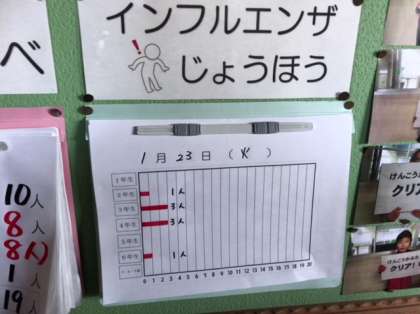 べ
インフルエンザ
じょうほう
1月23日（火）
1年生
2年生 1人
3年生 3人
4年生 3人
5年生
6年生 1人
0 1 2 3 4 5 6 7 8 9 10 11 12 13 14 15 16 17 18 19 20
10人
8人
8人)
1人
19人
けんこうかるた
クリア!
けんこうかるた
クリア!